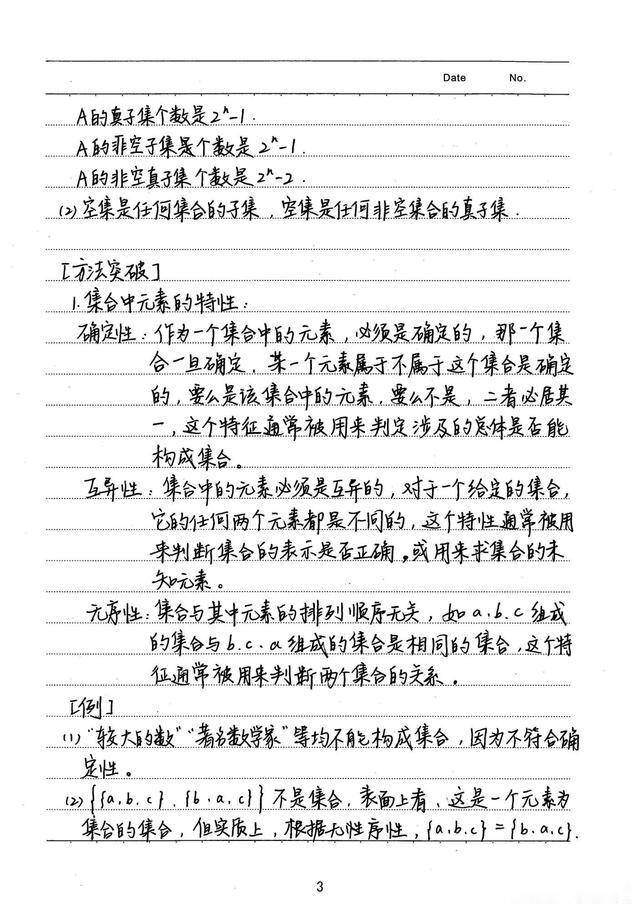 Date No.
A的真子集个数是2ⁿ-1.
A的非空子集是个数是2ⁿ-1.
A的非空真子集个数是2ⁿ-2.
(2)空集是任何集合的子集，空集是任何非空集合的真子集.
[方法突破]
1.集合中元素的特性：
确定性：作为一个集合中的元素，必须是确定的，那一个集
合一旦确定，某一个元素属于不属于这个集合是确定
的，要么是该集合中的元素，要么不是，二者必居其
一，这个特征通常被用来判定涉及的总体是否能
构成集合。
互异性：集合中的元素必须是互异的，对于一个给定的集合，
它的任何两个元素都是不同的，这个特性通常被用
来判断集合的表示是否正确。或用来求集合的未
知元素。
无序性：集合与其中元素的排列顺序无关，如a.b.c组成
的集合与b.c.a组成的集合是相同的集合，这个特
征通常被用来判断两个集合的关系。
[例]
(1)“较大的数”“著名数学家”等均不能构成集合，因为不符合确
定性。
(2){{a.b.c}.{b.a.c}}不是集合，表面上看，这是一个元素为
集合的集合，但实质上，根据无性序性，{a.b.c}={b.a.c}.
3